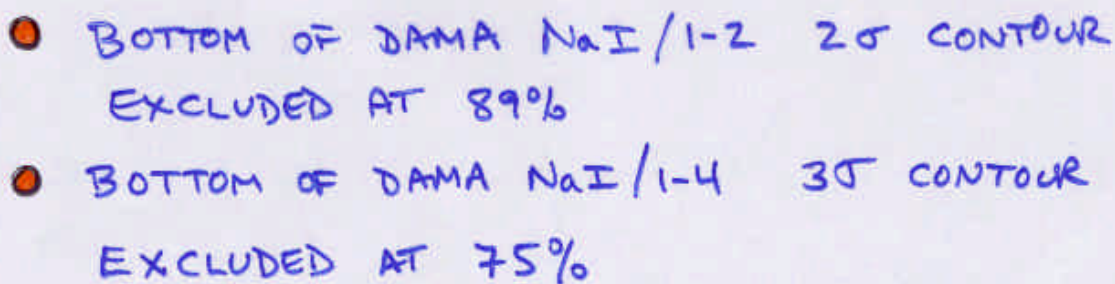 ● BOTTOM OF DAMA NaI/1-2 2σ CONTOUR
EXCLUDED AT 89%
● BOTTOM OF DAMA NaI/1-4 3σ CONTOUR
EXCLUDED AT 75%